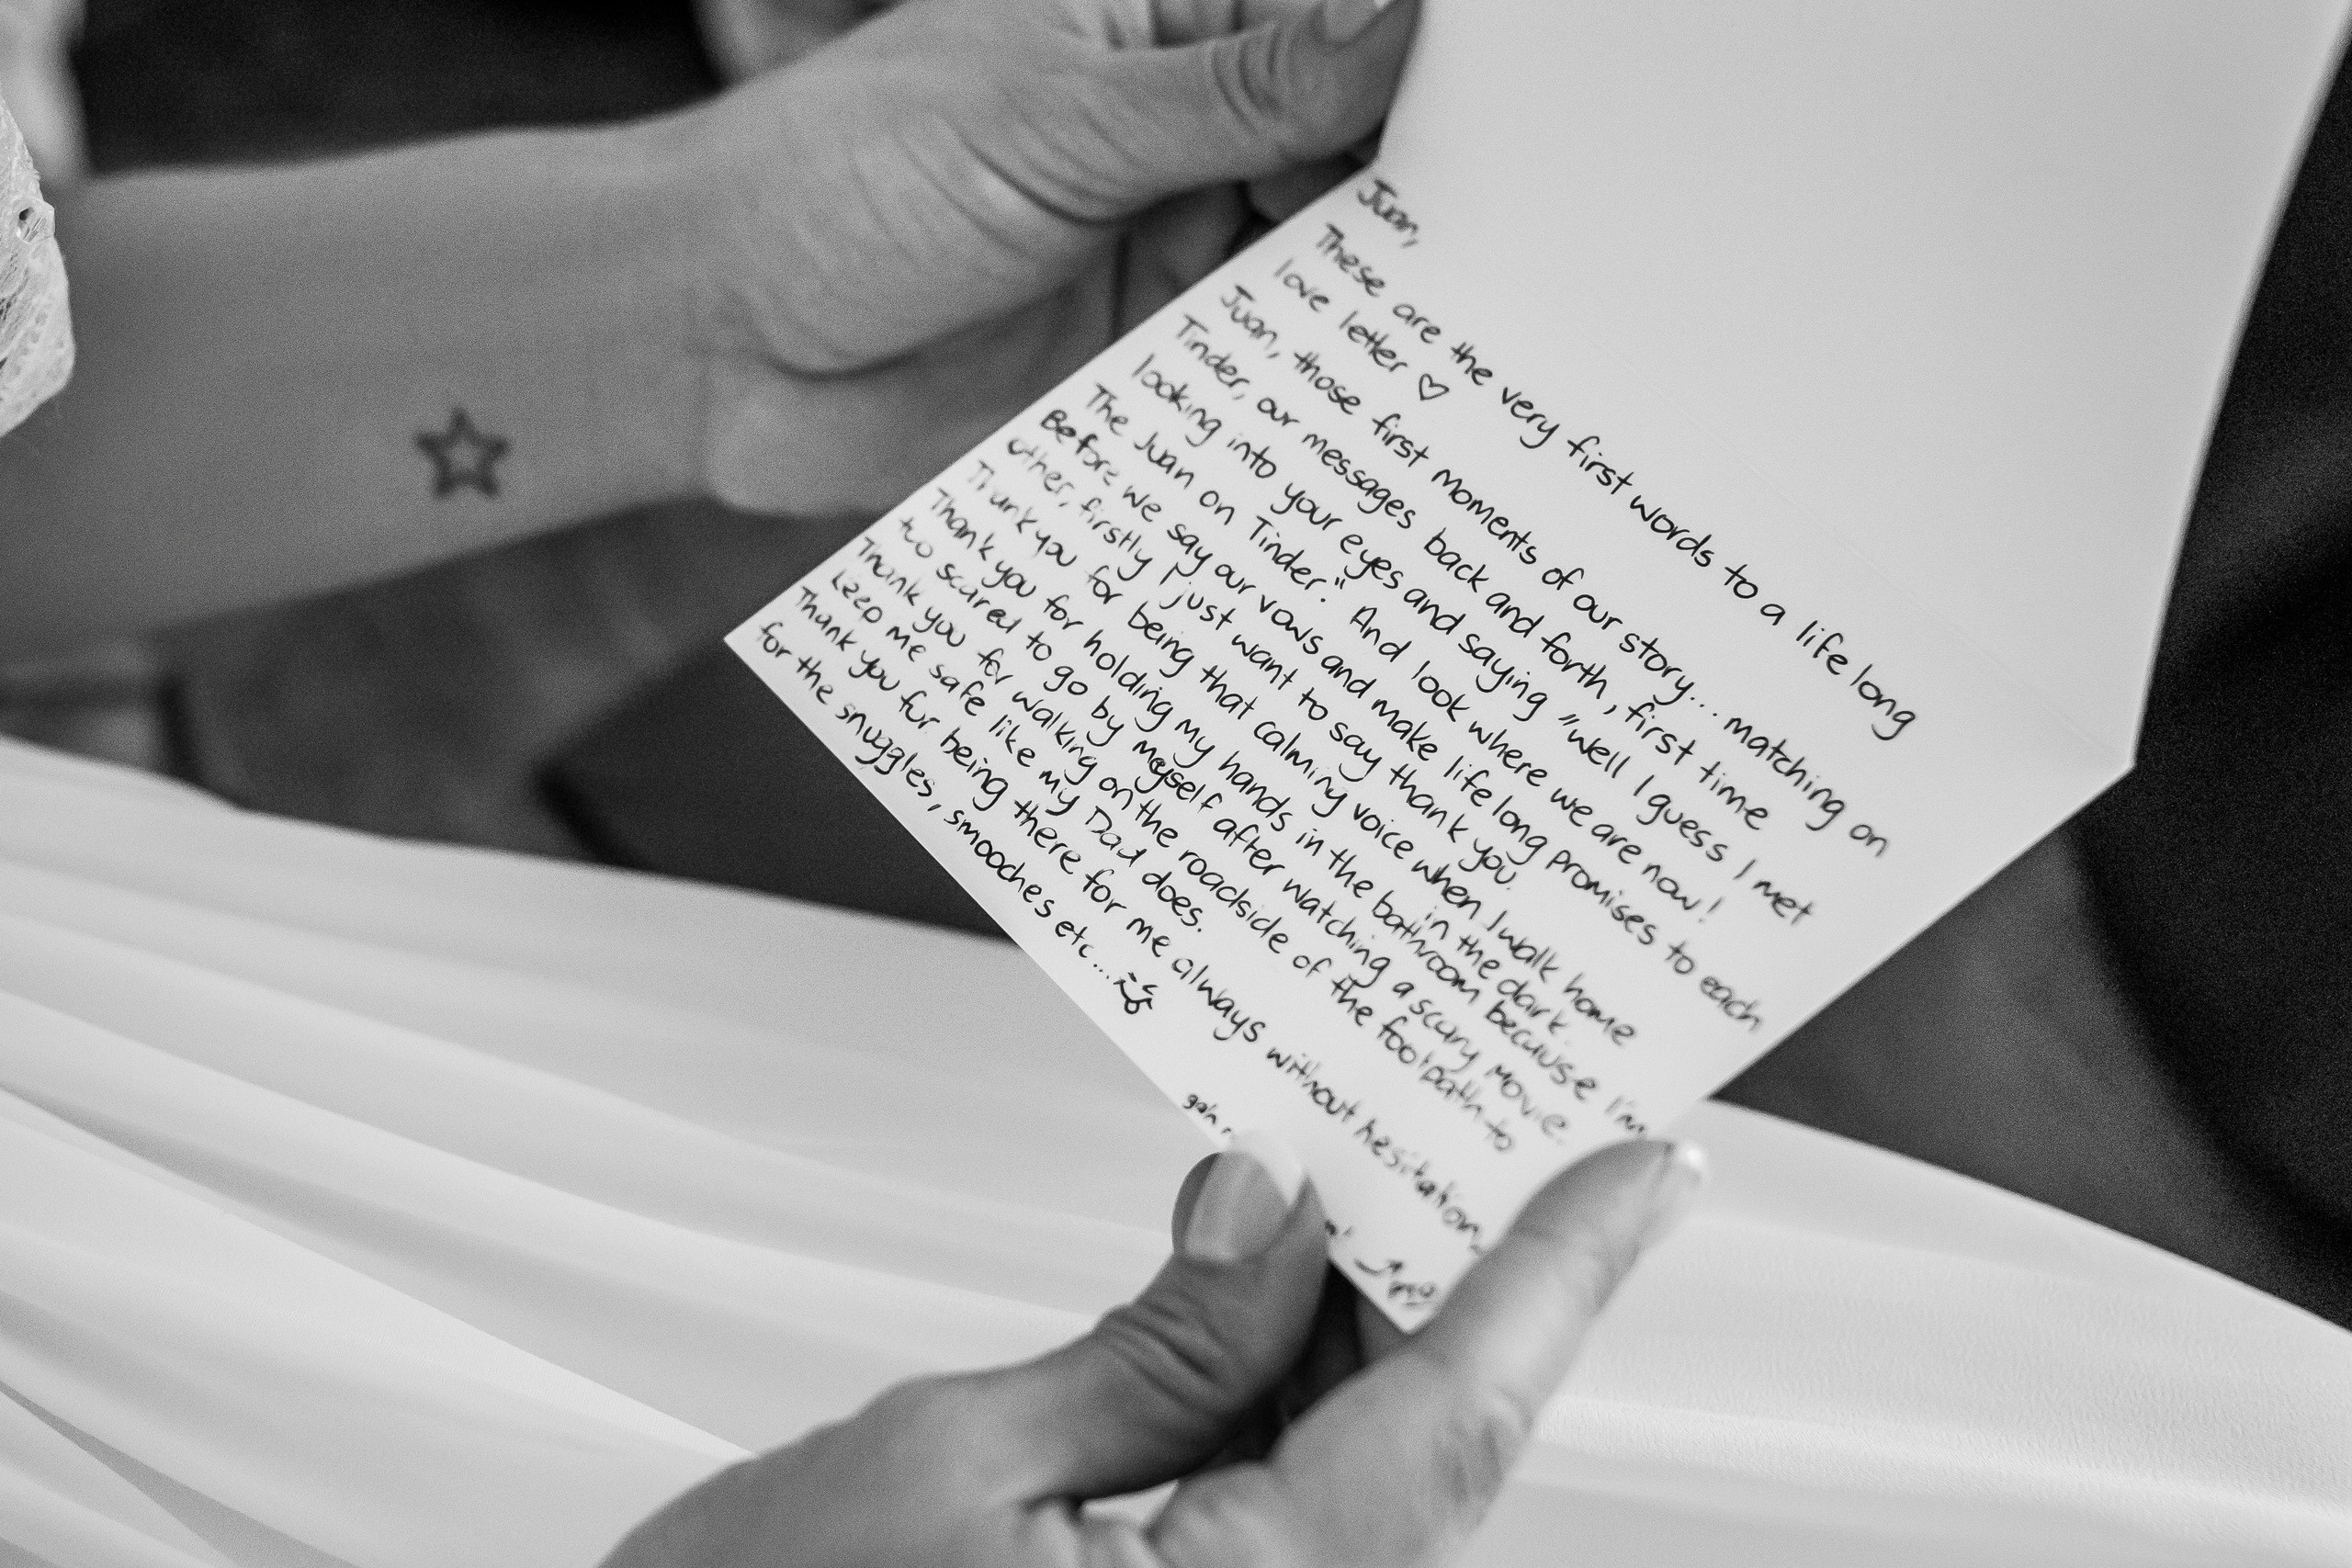 Juan,
These are the very first words to a life long
love letter ♡
Juan, those first moments of our story... matching on
Tinder, our messages back and forth, first time
looking into your eyes and saying "well I guess I met
The Juan on Tinder." And look where we are now!
Before we say our vows and make life long promises to each
other, firstly I just want to say thank you.
Thank you for being that calming voice when I walk home
in the dark.
Thank you for holding my hands in the bathroom because I'm
too scared to go by myself after watching a scary movie.
Thank you for walking on the roadside of the footpath to
keep me safe like my Dad does.
Thank you for being there for me always without hesitation,
for the snuggles, smooches etc...